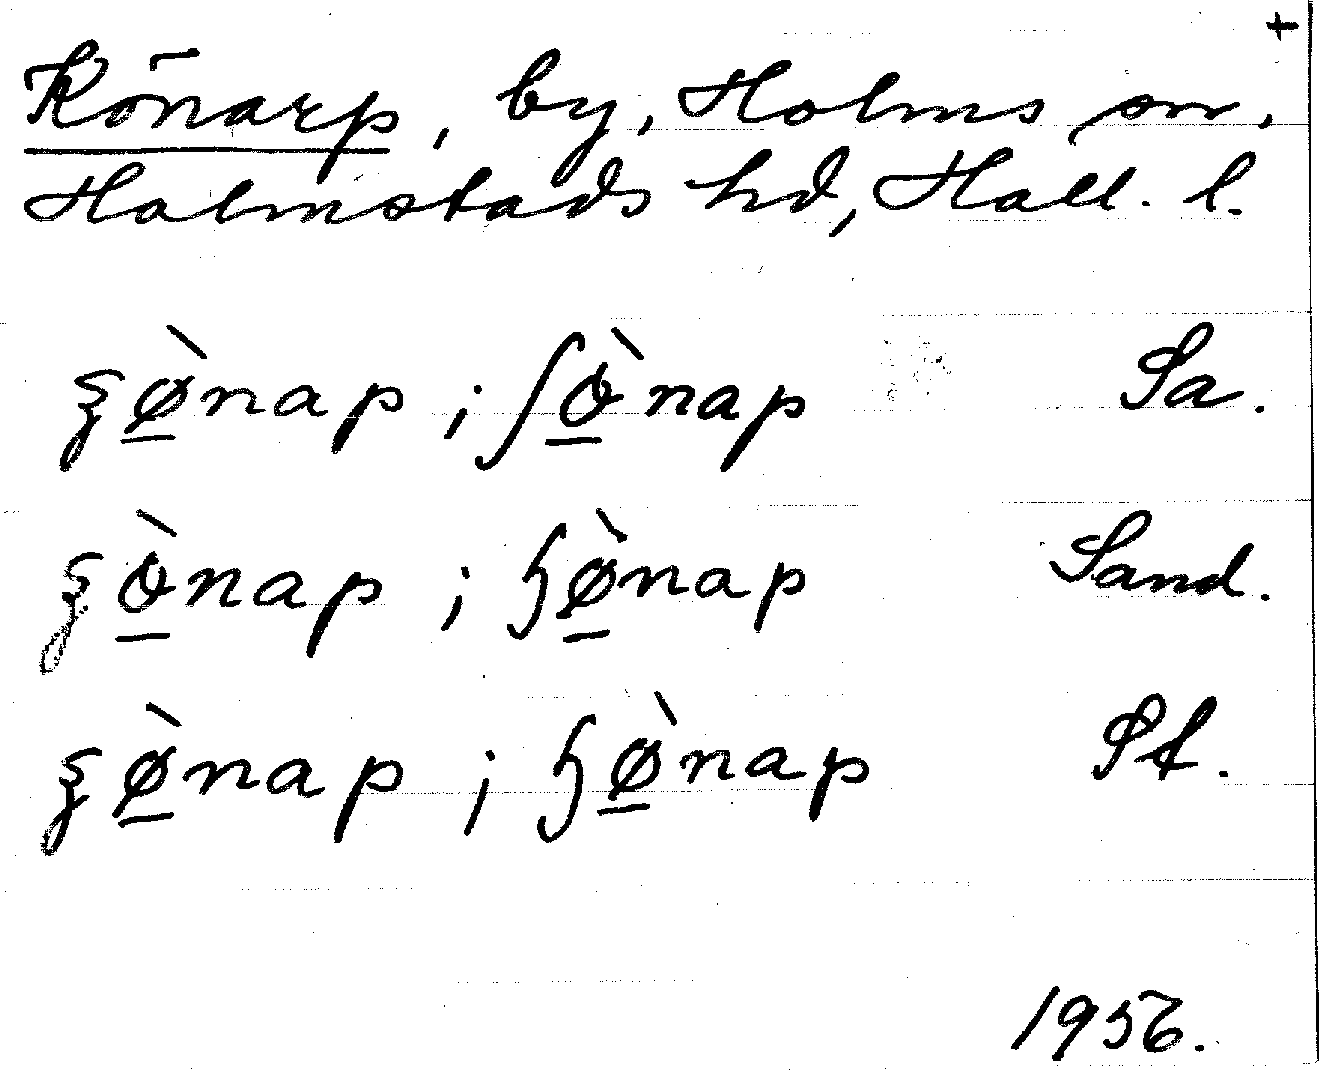 +
Könarp, by, Holms sn,
Holmstads hd, Hall. l.
ʂø̲̀nap ; ʃò̲nap Sa.
ʂò̲nap ; ɧø̲̀nap Sand.
ʂø̲̀nap ; ɧø̲̀nap St.
1956.